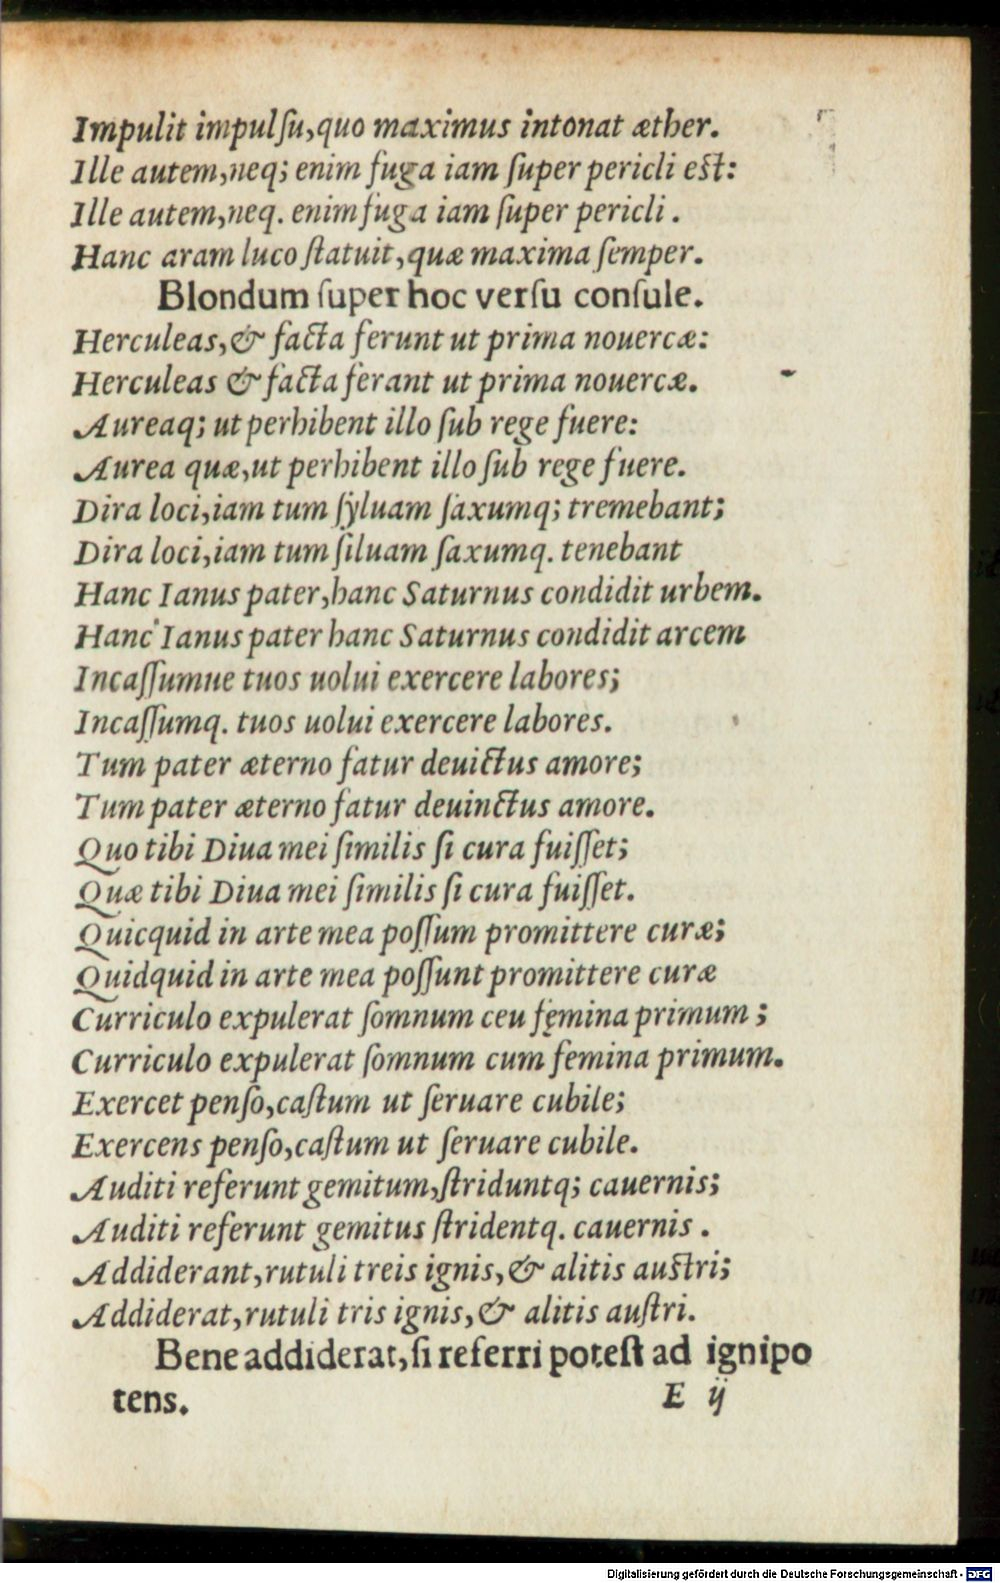 Impulit impulſu,quo maximus intonat æther.
Ille autem,neq; enim fuga iam ſuper pericli est:
Ille autem,neq. enim fuga iam ſuper pericli .
Hanc aram luco ſtatuit,quæ maxima ſemper.
Blondum ſuper hoc verſu conſule.
Herculeas,& facta ferunt ut prima nouercæ:
Herculeas & facta ferant ut prima nouercæ.
Aureaq; ut perhibent illo ſub rege fuere:
Aurea quæ,ut perhibent illo ſub rege fuere.
Dira loci,iam tum ſyluam ſaxumq; tremebant;
Dira loci,iam tum ſiluam ſaxumq. tenebant
Hanc Ianus pater,hanc Saturnus condidit urbem.
Hanc Ianus pater hanc Saturnus condidit arcem
Incaſſumue tuos uolui exercere labores;
Incaſſumq. tuos uolui exercere labores.
Tum pater æterno fatur deuictus amore;
Tum pater æterno fatur deuinctus amore.
Quo tibi Diua mei ſimilis ſi cura fuiſſet;
Quæ tibi Diua mei ſimilis ſi cura fuiſſet.
Quicquid in arte mea poſſum promittere curæ;
Quidquid in arte mea poſſunt promittere curæ
Curriculo expulerat ſomnum ceu fęmina primum ;
Curriculo expulerat ſomnum cum femina primum.
Exercet penſo,caſtum ut ſeruare cubile;
Exercens penſo,caſtum ut ſeruare cubile.
Auditi referunt gemitum,ſtriduntq; cauernis;
Auditi referunt gemitus ſtridentq. cauernis .
Addiderant,rutuli treis ignis,& alitis austri;
Addiderat,rutuli tris ignis,& alitis auſtri.
Bene addiderat,ſi referri poteſt ad ignipo
tens.
E ij
Digitalisierung gefördert durch die Deutsche Forschungsgemeinschaft - DFG